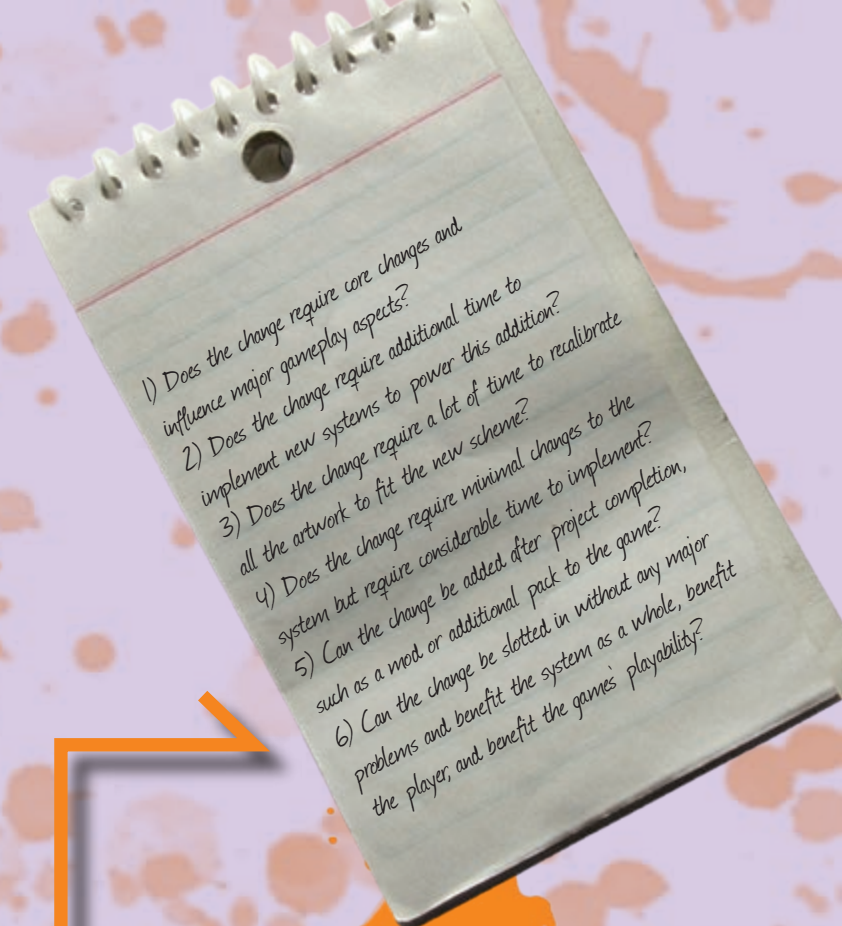 1) Does the change require core changes and
influence major gameplay aspects?
2) Does the change require additional time to
implement new systems to power this addition?
3) Does the change require a lot of time to recalibrate
all the artwork to fit the new scheme?
4) Does the change require minimal changes to the
system but require considerable time to implement?
5) Can the change be added after project completion,
such as a mod or additional pack to the game?
6) Can the change be slotted in without any major
problems and benefit the system as a whole, benefit
the player, and benefit the games' playability?